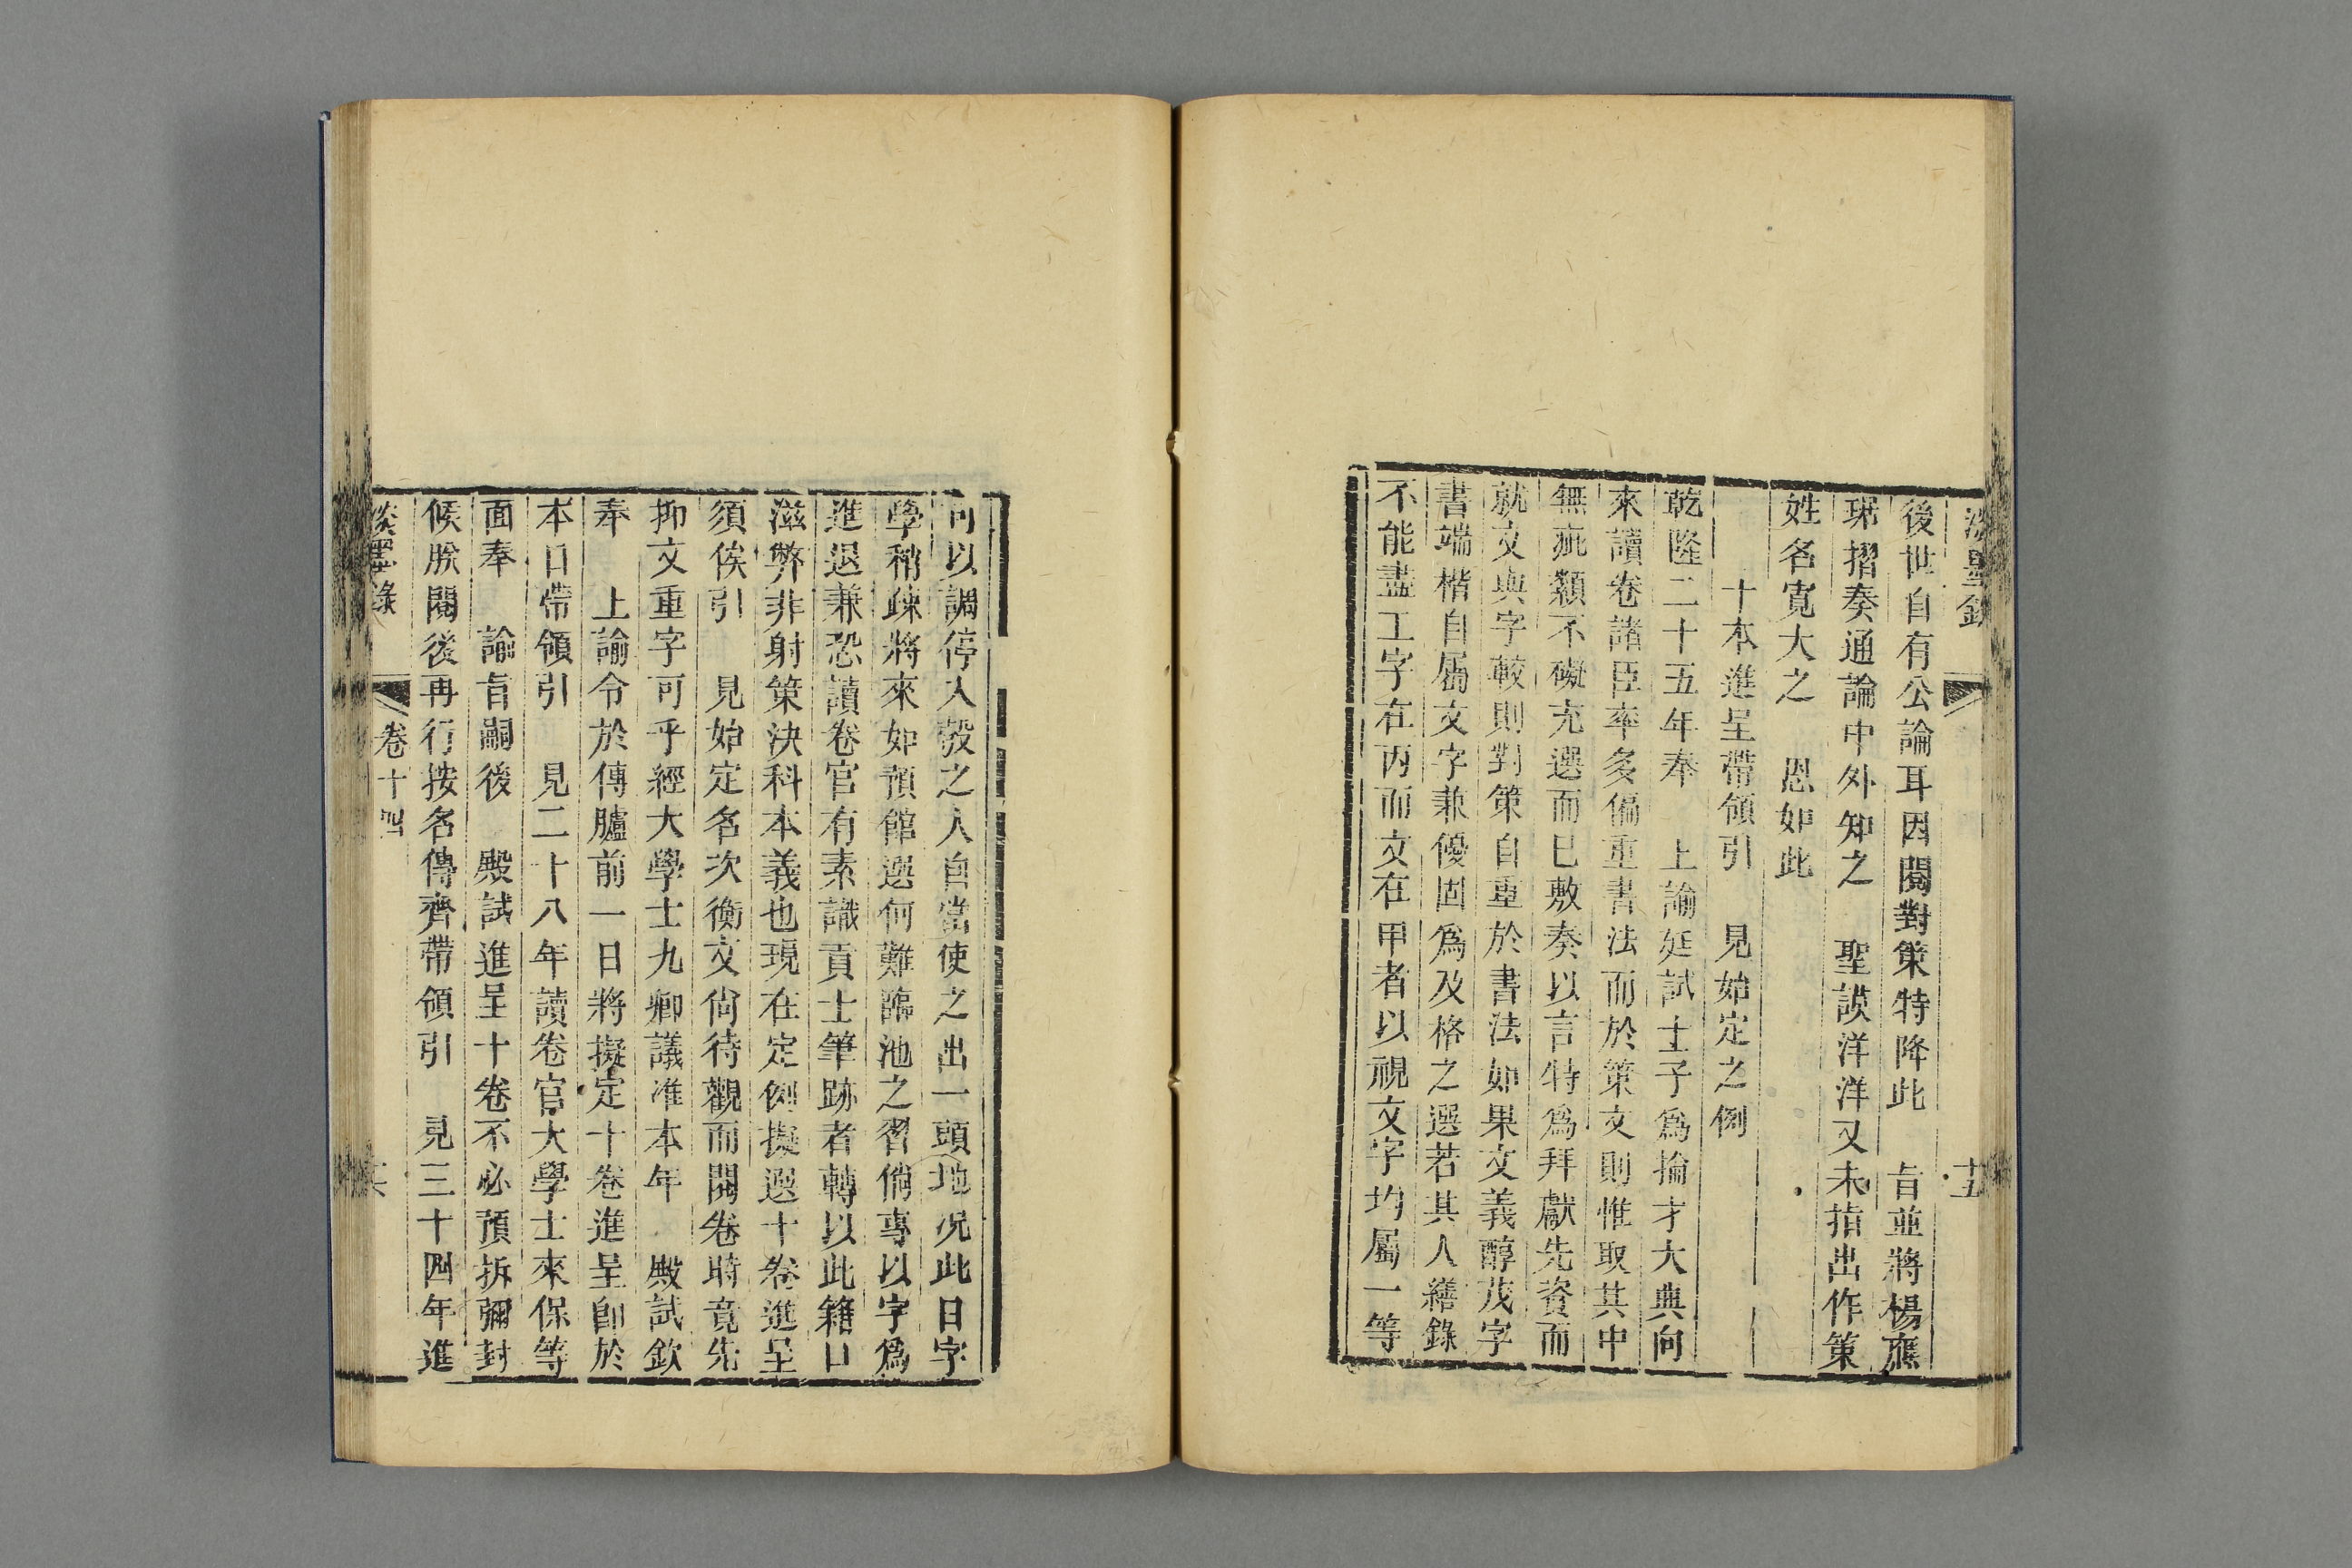 淡墨錄
十五
後世自有公論耳因閱對策特降此　旨並將楊應
琚摺奏通諭中外知之　聖謨洋洋又未指出作策
姓名寛大之　恩如此
十本進呈帶領引　見始定之例
乾隆二十五年奉　上諭廷試士子爲掄才大典向
來讀卷諸臣率多偏重書法而於策文則惟取其中
無疵纇不礙充選而已敷奏以言特爲拜獻先資而
就文與字較則對策自重於書法如果文義醇茂字
書端楷自屬文字兼優固爲及格之選若其人繕錄
不能盡工字在丙而文在甲者以視文字均屬一等
可以調停入彀之人自當使之出一頭地况此日字
學稍疎將來如預館選何難臨池之習倘專以字爲
進退兼恐讀卷官有素識貢士筆跡者轉以此籍口
滋弊非射策決科本義也現在定例擬選十卷進呈
須俟引　見始定名次衡文尙待觀而閱卷時竟先
抑文重字可乎經大學士九卿議准本年　殿試欽
奉　上諭令於傳臚前一日將擬定十卷進呈卽於
本日帶領引　見二十八年讀卷官大學士來保等
面奉　諭旨嗣後　殿試進呈十卷不必預拆彌封
候朕閱後再行按名傳齊帶領引　見三十四年進
淡墨錄
卷十四